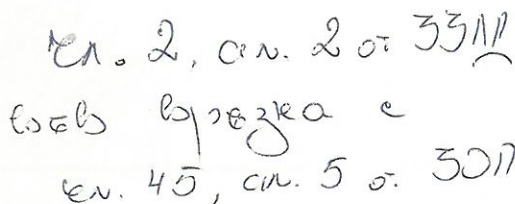 чл. 2, ал. 2 от ЗЗЛД
във връзка с
чл. 45, ал. 5 от ЗОП